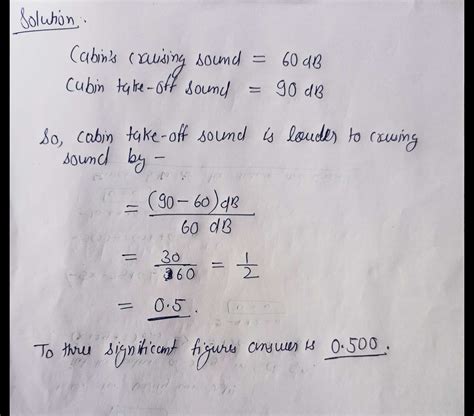 Solution.
Cabin's crausing sound = 60 dB
Cubin take-off sound = 90 dB
So, cabin take-off sound is louder to crusing
sound by -
= (90-60) dB / 60 dB
= 30/60 = 1/2
= 0.5.
To three significant figures answer is 0.500.